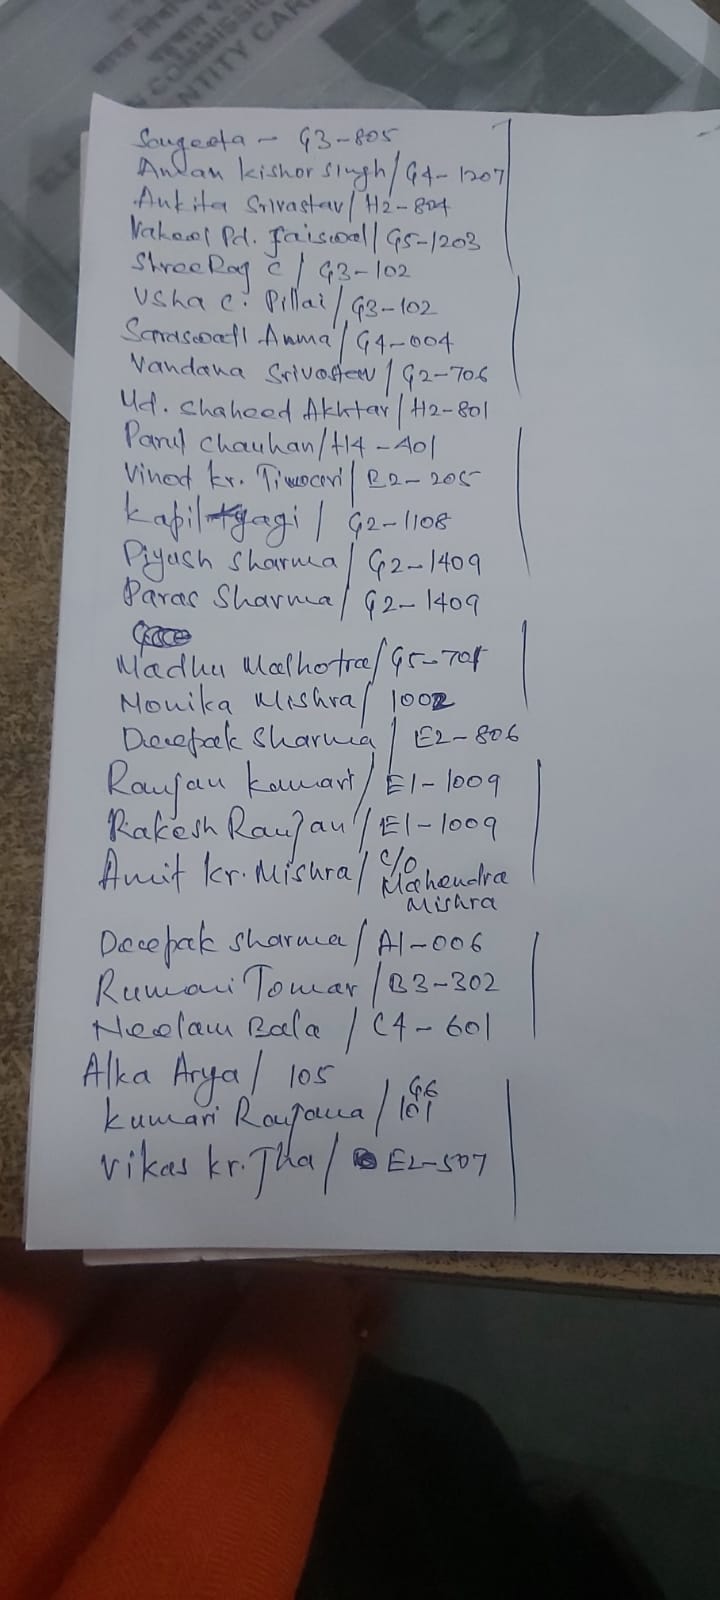 COMMISSION
IDENTITY CARD
ELE
Sangeeta - G3-805
Aman Kishor Singh/G4-1207
Ankita Srivastav/H2-804
Vakeel Pd. Jaiswal/G5-1203
ShreeRag C/G3-102
Usha C. Pillai/G3-102
Saraswati Amma/G4-004
Vandana Srivastav/G2-706
Md. Shaheed Akhtar/H2-801
Parul Chauhan/H4-401
Vinod kr. Tiwari/B2-205
Kapil Tyagi/G2-1108
Piyush Sharma/G2-1409
Paras Sharma/G2-1409
Madhu Malhotra/G5-704
Monika Mishra/1002
Deepak Sharma/E2-806
Ranjan Kumari/E1-1009
Rakesh Ranjan/E1-1009
Amit kr. Mishra/c/o
Mahendra
Mishra
Deepak Sharma/A1-006
Rumani Tomar/B3-302
Neelam Bala/C4-601
Alka Arya/105
Kumari Ranjana/G6
101
Vikas kr. Jha/E2-507